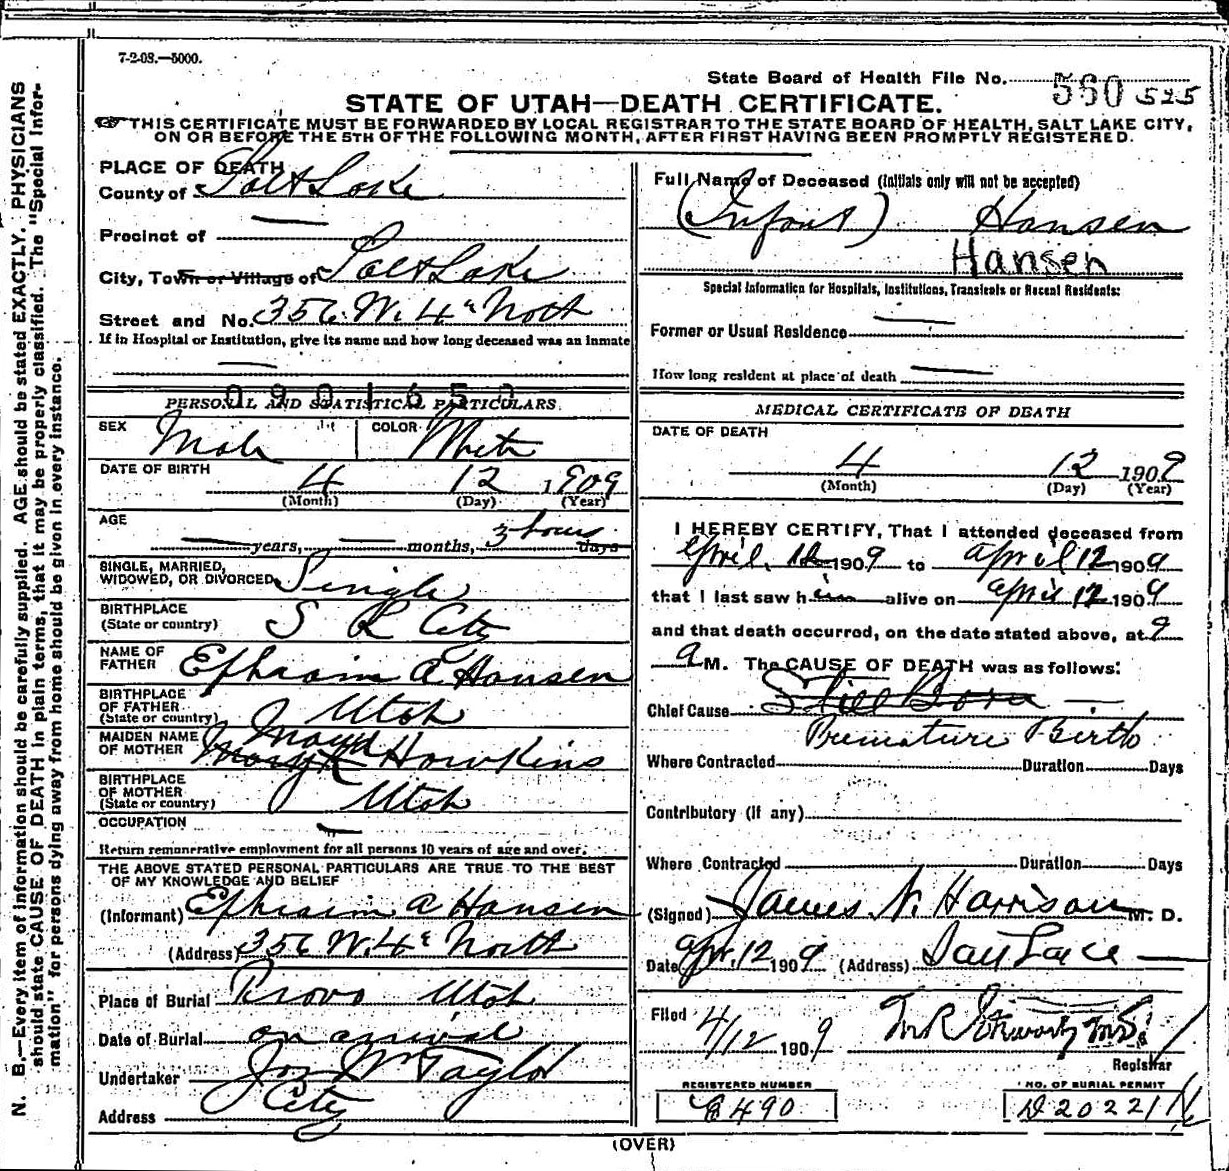 7-2-08.—5000.
State Board of Health File No. 560 525
STATE OF UTAH—DEATH CERTIFICATE.
THIS CERTIFICATE MUST BE FORWARDED BY LOCAL REGISTRAR TO THE STATE BOARD OF HEALTH, SALT LAKE CITY,
ON OR BEFORE THE 5TH OF THE FOLLOWING MONTH, AFTER FIRST HAVING BEEN PROMPTLY REGISTERED.
PLACE OF DEATH
County of Salt Lake
Precinct of —
City, Town or Village of Salt Lake
Street and No. 356 W. 4th North
If in Hospital or Institution, give its name and how long deceased was an inmate
—
Full Name of Deceased (Initials only will not be accepted)
(Infant) Hansen
Hansen
Special Information for Hospitals, Institutions, Transients or Recent Residents:
Former or Usual Residence —
How long resident at place of death —
PERSONAL AND STATISTICAL PARTICULARS.
SEX Male COLOR White
DATE OF BIRTH 4 12 1909
(Month) (Day) (Year)
AGE
— years, — months, 3 hours days
SINGLE, MARRIED,
WIDOWED, OR DIVORCED Single
BIRTHPLACE
(State or country) S L City
NAME OF
FATHER Ephraim A Hansen
BIRTHPLACE
OF FATHER
(State or country) Utah
MAIDEN NAME
OF MOTHER Maud Hawkins
BIRTHPLACE
OF MOTHER
(State or country) Utah
OCCUPATION —
Return remunerative employment for all persons 10 years of age and over.
THE ABOVE STATED PERSONAL PARTICULARS ARE TRUE TO THE BEST
OF MY KNOWLEDGE AND BELIEF
(Informant) Ephraim A Hansen
(Address) 356 W. 4th North
Place of Burial Provo Utah
Date of Burial on arrival
Undertaker Jos Wm Taylor
Address City
MEDICAL CERTIFICATE OF DEATH
DATE OF DEATH
4 12 1909
(Month) (Day) (Year)
I HEREBY CERTIFY, That I attended deceased from
April 12 1909 to April 12 1909
that I last saw him alive on April 12 1909
and that death occurred, on the date stated above, at 9
a M. The CAUSE OF DEATH was as follows:
Chief Cause Still Born —
Premature Birth
Where Contracted Duration Days
Contributory (if any)
Where Contracted Duration Days
(Signed) James N. Harrison M. D.
Date Apr. 12 1909 (Address) Salt Lake —
Filed 4/12 1909
Registrar
REGISTERED NUMBER
490
NO. OF BURIAL PERMIT
D 20221
(OVER)
N. B.—Every item of information should be carefully supplied. AGE should be stated EXACTLY. PHYSICIANS
should state CAUSE OF DEATH in plain terms, that it may be properly classified. The "Special Infor-
mation" for persons dying away from home should be given in every instance.